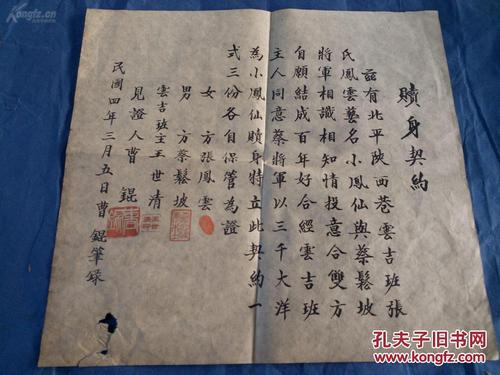 贖身契約
茲有北平陝西巷雲吉班張
氏鳳雲藝名小鳳仙與蔡鬆坡
將軍相識相知情投意合雙方
自願結成百年好合經雲吉班
主人同意蔡將軍以三千大洋
為小鳳仙贖身特立此契約一
式三份各自保管為證
女 方張鳳雲
男 方蔡鬆坡
雲吉班主王世清
見證人曹 錕
民國四年三月五日曹 錕筆錄
Kongfz.cn
孔夫子旧书网
www.kongfz.com